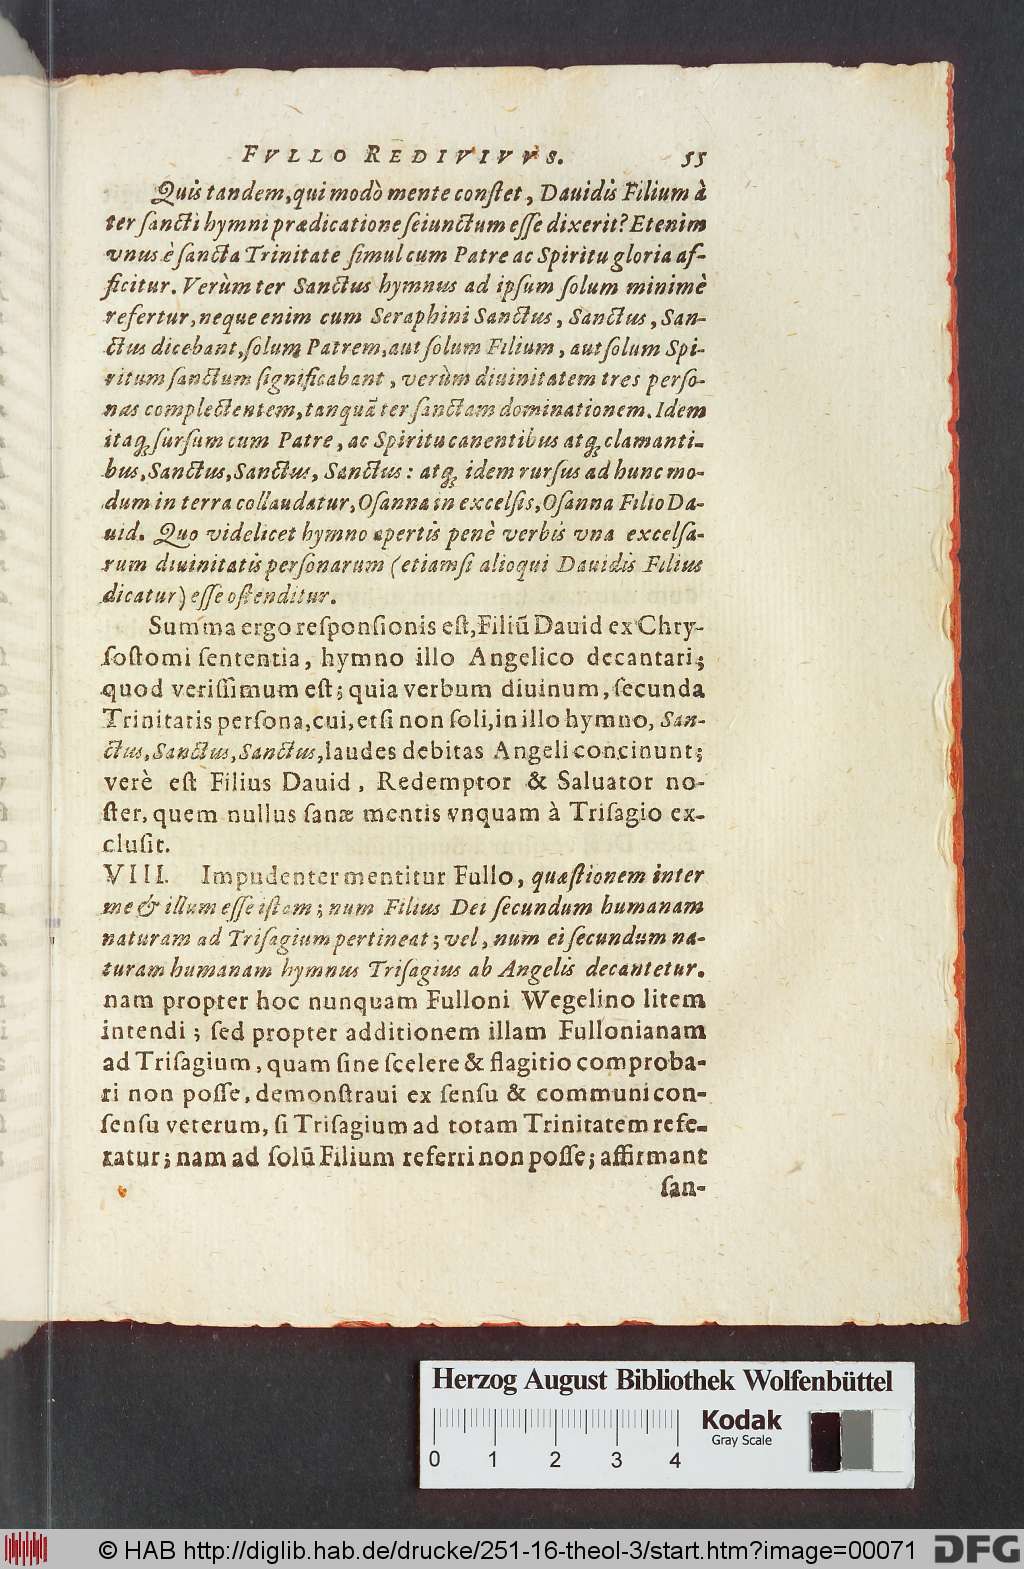 FVLLO REDIVIVVS. 55
Quis tandem, qui modò mente constet, Dauidis Filium à
ter sancti hymni prædicatione seiunctum esse dixerit? Etenim
vnus è sancta Trinitate simul cum Patre ac Spiritu gloria af-
ficitur. Verùm ter Sanctus hymnus ad ipsum solum minimè
refertur, neque enim cum Seraphini Sanctus, Sanctus, San-
ctus dicebant, solum Patrem, aut solum Filium, aut solum Spi-
ritum sanctum significabant, verùm diuinitatem tres perso-
nas complectentem, tanquã ter sanctam dominationem. Idem
itaq; sursum cum Patre, ac Spiritu canentibus atq; clamanti-
bus, Sanctus, Sanctus, Sanctus: atq; idem rursus ad hunc mo-
dum in terra collaudatur, Osanna in excelsis, Osanna Filio Da-
uid. Quo videlicet hymno apertis penè verbis vna excelsa-
rum diuinitatis personarum (etiamsi alioqui Dauidis Filius
dicatur) esse ostenditur.
Summa ergo responsionis est, Filiũ Dauid ex Chry-
sostomi sententia, hymno illo Angelico decantari;
quod verissimum est; quia verbum diuinum, secunda
Trinitatis persona, cui, etsi non soli, in illo hymno, San-
ctus, Sanctus, Sanctus, laudes debitas Angeli concinunt;
verè est Filius Dauid, Redemptor & Saluator no-
ster, quem nullus sanæ mentis vnquam à Trisagio ex-
clusit.
VIII. Impudenter mentitur Fullo, quæstionem inter
me & illum esse istam; num Filius Dei secundum humanam
naturam ad Trisagium pertineat; vel, num ei secundum na-
turam humanam hymnus Trisagius ab Angelis decantetur.
nam propter hoc nunquam Fulloni Wegelino litem
intendi; sed propter additionem illam Fullonianam
ad Trisagium, quam sine scelere & flagitio comproba-
ri non posse, demonstraui ex sensu & communi con-
sensu veterum, si Trisagium ad totam Trinitatem refe-
ratur; nam ad solũ Filium referri non posse; affirmant
san-
Herzog August Bibliothek Wolfenbüttel
Kodak
Gray Scale
0 1 2 3 4
© HAB http://diglib.hab.de/drucke/251-16-theol-3/start.htm?image=00071
DFG